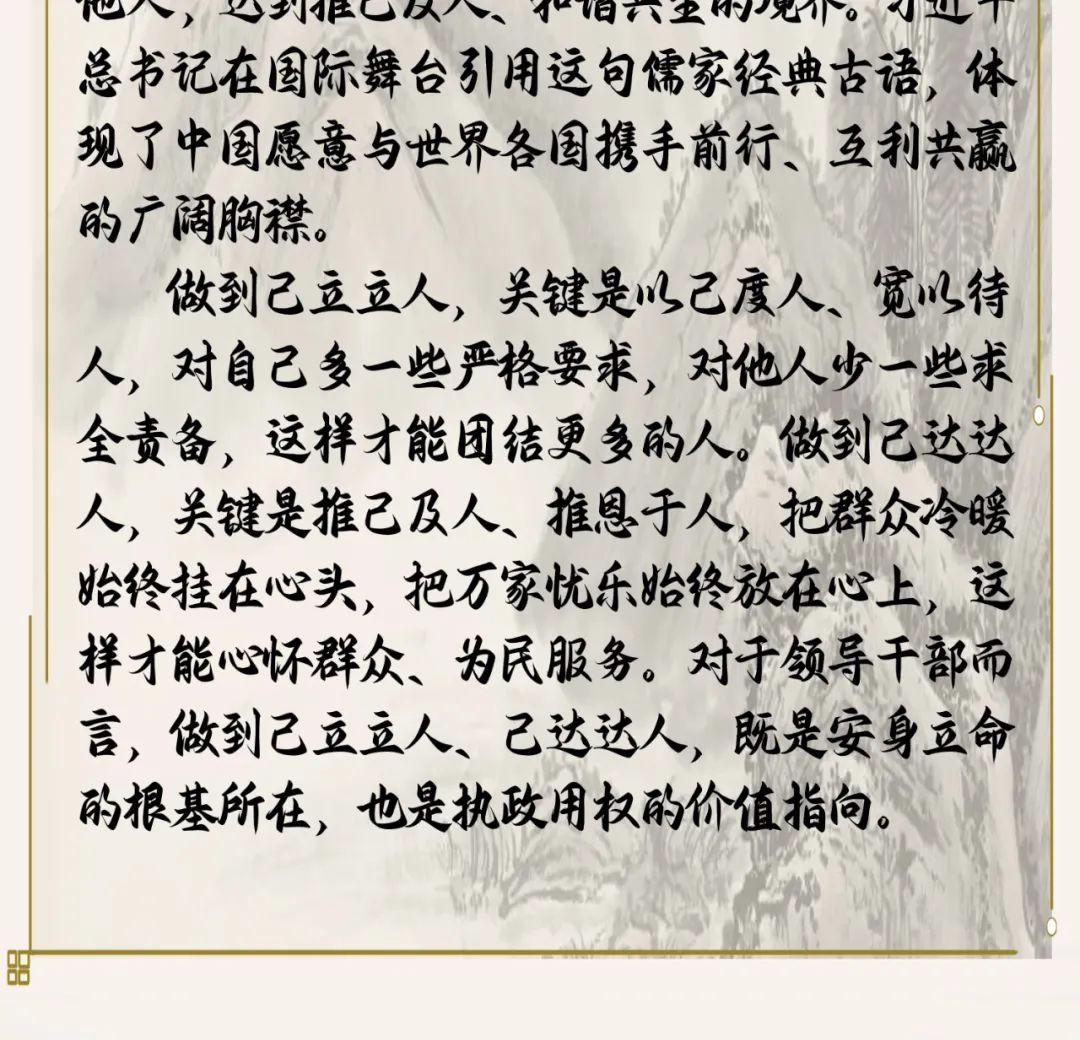 他人，达到推己及人、和谐共生的境界。习近平
总书记在国际舞台引用这句儒家经典古语，体
现了中国愿意与世界各国携手前行、互利共赢
的广阔胸襟。
做到己立立人，关键是以己度人、宽以待
人，对自己多一些严格要求，对他人少一些求
全责备，这样才能团结更多的人。做到己达达
人，关键是推己及人、推恩于人，把群众冷暖
始终挂在心头，把万家忧乐始终放在心上，这
样才能心怀群众、为民服务。对于领导干部而
言，做到己立立人、己达达人，既是安身立命
的根基所在，也是执政用权的价值指向。